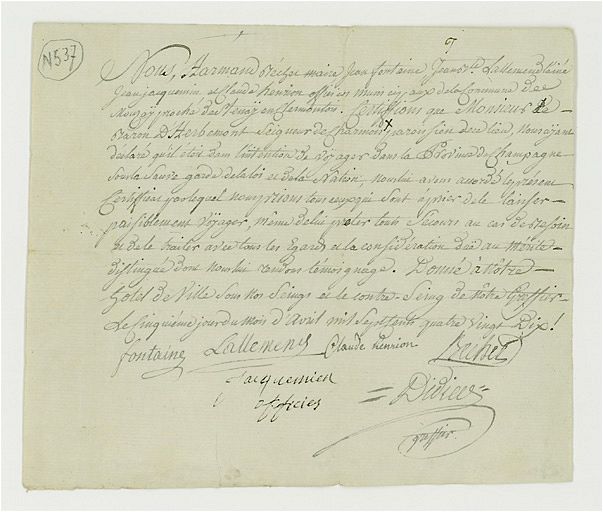 N537
9
Nous, Harmand Béchet maire Jean fontaine Jean Lallemend l'ainé
Jean jacquemin et Claude henrion officiers municipaux de la Commune de
proche de en Clermontois. Certifions que Monsieur Le
Baron D'Herbemont Seigneur de Charmois x paroissien de ce lieu, nous ayant
declaré qu'il étoit dans l'intention de Voyager dans la Province de Champagne
Sous la Sauve garde de la loi et de la Nation, nous lui avons accordé le présent
Certificat par lequel nous prions tous ceux qui Sont à prier de le laisser
paisiblement Voyager, même de lui preter tout Secours au cas de besoin
et de le traiter avec tous les Egards et la considération düe au merite
distingué dont nous lui rendons témoignage. Donné à Nôtre
hotel de Ville Sous Nos Seings et le contre-Seing de Nôtre Greffier
Le Cinquième jour du Mois d'Avril mil Sept Cents quatre Vingt Dix!
fontaine Lallemend Claude henrion Béchet
Jacquemin
officier
= Didier =
greffier